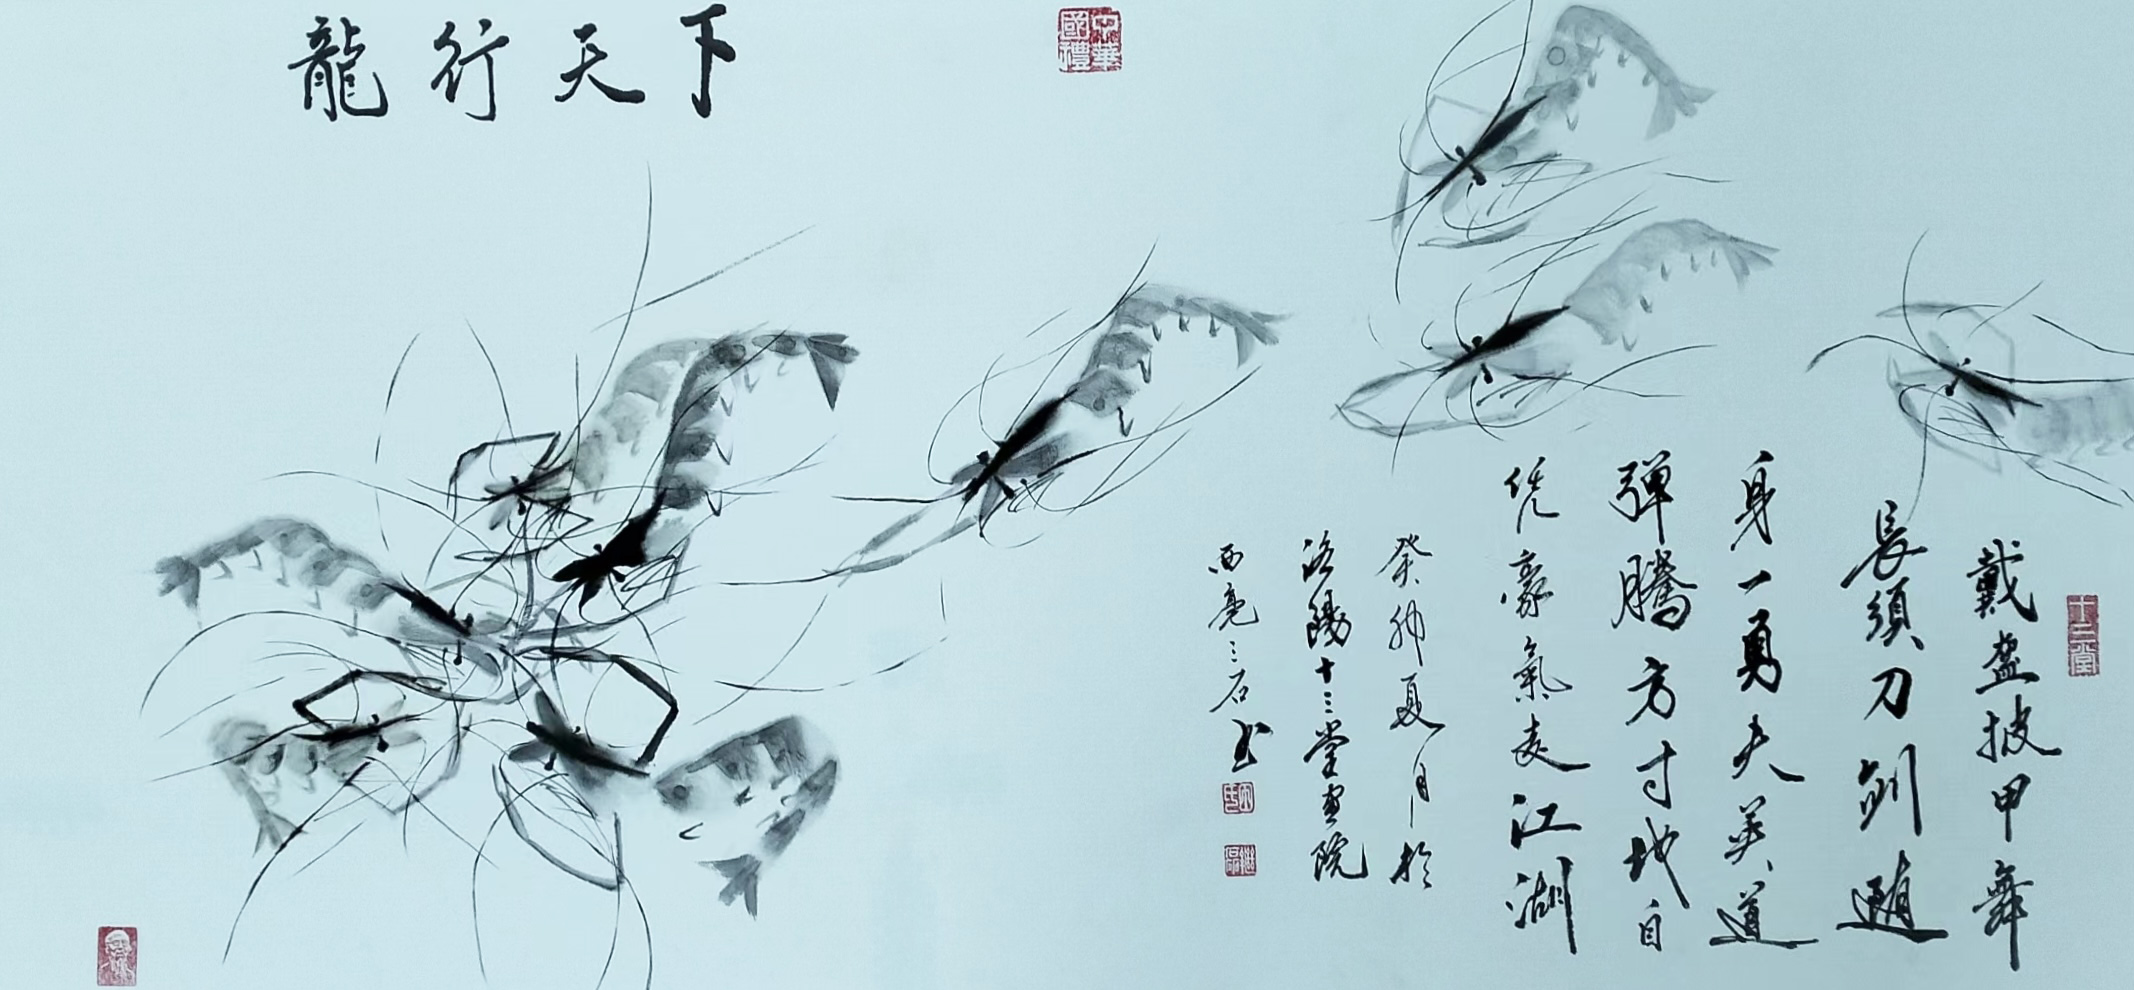 龍行天下
中華
國禮
十三堂
戴盔披甲舞
長須刀劍隨
身一勇夫莫道
彈騰方寸地自
凭豪氣走江湖
癸卯夏月於
洛陽十三堂畫院
西亮三石书